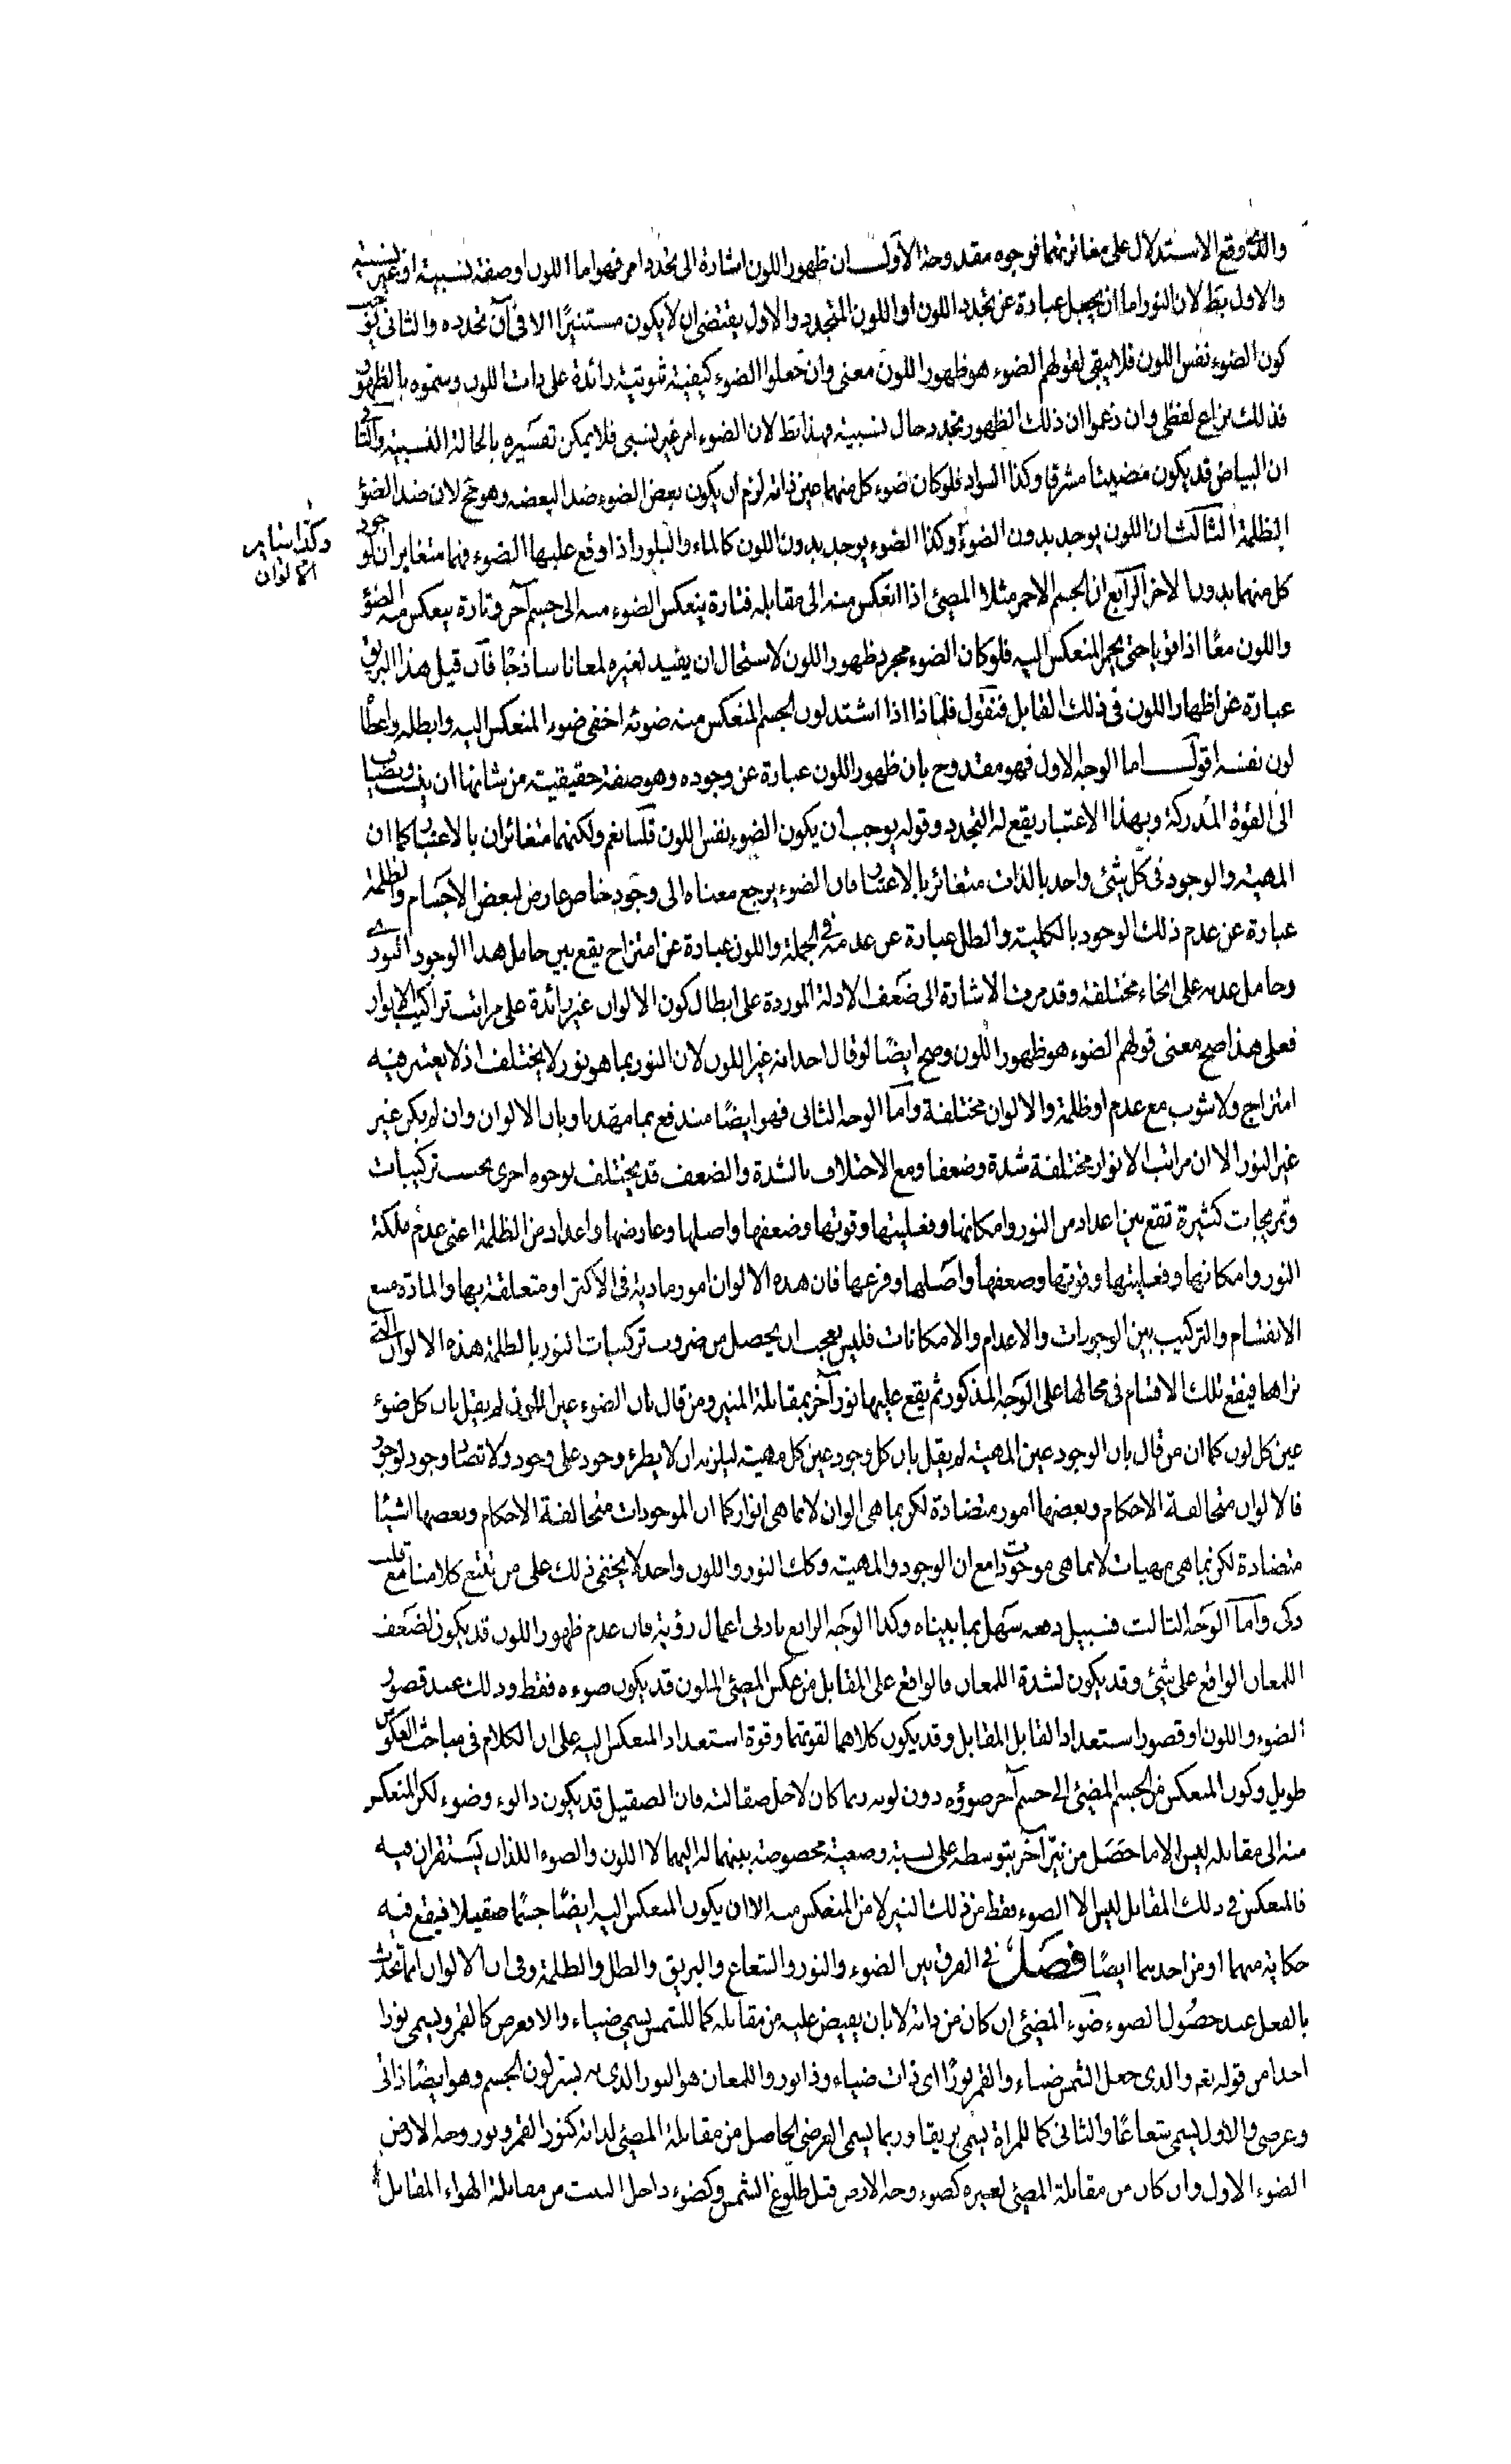 والذى وقع الاستدلال على مغائرتهما فوجوه مقدوحة الاول ان ظهور اللون اشارة الى تجدد امر فهو اما اللون او صفة نسبية او غير نسبية
والاول بط لان النور اما ان يجعل عبارة عن تجدد اللون او اللون المتجدد والاول يقتضى ان لا يكون مستنيرًا الا فى آن تجدده والثانى يوجب
كون الضوء نفس اللون فلا يبقى لقولهم الضوء هو ظهور اللون معنى وان جعلوا الضوء كيفية ثبوتية زائدة على ذات اللون وسموه بالظهور
فذلك نزاع لفظى وان زعموا ان ذلك الظهور تجدد حال نسبية فهذا بط لان الضوء امر غير نسبى فلا يمكن تفسيره بالحالة النسبية والثانى
ان البياض قد يكون مضيئا مشرقا وكذا السواد فلو كان ضوء كل منهما عين ذاته لزم ان يكون بعض الضوء ضد البعضه وهو مح لان ضد الضوء
الظلمة الثالث ان اللون يوجد بدون الضوء وكذا الضوء يوجد بدون اللون كالماء والبلور اذا وقع عليها الضوء فهما متغايران لوجود
وكذا سائر
الالوان
كل منهما بدون الاخر الرابع ان الجسم الاحمر مثلا المضيئ اذا انعكس منه الى مقابله فتارة ينعكس الضوء منه الى جسم آخر وتارة ينعكس منه الضوء
واللون معًا اذا قويا حتى يحمر المنعكس اليه فلو كان الضوء مجرد ظهور اللون لاستحال ان يفيد لغيره لمعانا ساذجًا فان قيل هذا البريق
عبارة عن اظهار اللون فى ذلك القابل فنقول فلماذا اذا اشتد لون الجسم المنعكس منه ضوئه اخفى ضوء المنعكس اليه وابطله واعطاه
لون نفسه اقول اما الوجه الاول فهو مقدوح بان ظهور اللون عبارة عن وجوده وهو صفة حقيقية من شانها ان ينسب ويضاف
الى القوة المدركة وبهذا الاعتبار يقع له التجدد وقوله يوجب ان يكون الضوء نفس اللون قلنا نعم ولكنهما متغائران بالاعتبار كما ان
المهية والوجود فى كل شيئ واحد بالذات متغائر بالاعتبار فان الضوء يرجع معناه الى وجود خاص عارض لبعض الاجسام والظلمة
عبارة عن عدم ذلك الوجود بالكلية والظل عبارة عن عدمه فى الجملة واللون عبارة عن امتزاج يقع بين حامل هذا الوجود النورى
وحامل عدمه على انحاء مختلفة وقد مرت الاشارة الى ضعف الادلة الموردة على ابطال كون الالوان غير زائدة على مراتب تراكيب الانوار
فعلى هذا صح معنى قولهم الضوء هو ظهور اللون وصح ايضًا لو قال احد انه غير اللون لان النور بما هو نور لا يختلف اذ لا يعتبر فيه
امتزاج ولا شوب مع عدم او ظلمة والالوان مختلفة واما الوجه الثانى فهو ايضًا مندفع بما مهدنا وبان الالوان وان لم يكن غير
غير النور الا ان مراتب الانوار مختلفة شدة وضعفا ومع الاختلاف بالشدة والضعف قد يختلف بوجوه اخرى بحسب تركيبات
وتمزيجات كثيرة تقع بين اعداد من النور وامكانها وفعليتها وقوتها وضعفها واصلها وعارضها واعداد من الظلمة اعنى عدم ملكة
النور وامكانها وفعليتها وقوتها وضعفها واصلها وفرعها فان هذه الالوان امور مادية فى الاكثر او متعلقة بها والمادة منبع
الانقسام والتركيب بين الوجودات والاعدام والامكانات فليس بعجب ان يحصل من ضروب تركيبات النور بالظلمة هذه الالوان التى
نراها فيقع تلك الاقسام فى محالها على الوجه المذكور ثم يقع عليها نور آخر بمقابلة المنير ومن قال بان الضوء عين اللون لم يقل بان كل ضوء
عين كل لون كما ان من قال بان الوجود عين المهية لم يقل بان كل وجود عين كل مهية ليلزمه ان لا يطرء وجود على وجود ولا تضاد وجود لوجود
فالالوان متخالفة الاحكام وبعضها امور متضادة لكن بما هى الوان لا بما هى انوار كما ان الموجودات متخالفة الاحكام وبعضها اشياء
متضادة لكن بما هى مهيات لا بما هى موجودات مع ان الوجود والمهية وكك النور واللون واحد لا يخفى ذلك على من تتبع كلامنا مع قلب
ذكى واما الوجه الثالث فسبيل دفعه سهل بما بيناه وكذا الوجه الرابع بادنى اعمال رؤية فان عدم ظهور اللون قد يكون لضعف
اللمعان الواقع على شيئ وقد يكون لشدة اللمعان فالواقع على المقابل من عكس المضيئ الملون قد يكون ضوءه فقط وذلك عند قصور
الضوء واللون او قصور استعداد القابل المقابل وقد يكون كلاهما لقوتهما وقوة استعداد المنعكس اليه على ان الكلام فى مباحث العكوس
طويل وكون المنعكس من الجسم المضيئ الى جسم آخر ضوؤه دون لونه ربما كان لاجل صقالته فان الصقيل قد يكون ذا لون وضوء لكن المنعكس
منه الى مقابله ليس الا ما حصل من نير آخر بتوسطه على نسبة وضعية مخصوصة بينهما له اليهما لا اللون والضوء اللذان يستقران فيه
فالمنعكس فى ذلك المقابل ليس الا الضوء فقط من ذلك النير لا من المنعكس منه الا ان يكون المنعكس اليه ايضًا جسمًا صقيلا فيقع فيه
حكاية منهما او من احدهما ايضًا فصل فى الفرق بين الضوء والنور والشعاع والبريق والظل والظلمة وفى ان الالوان انما تحدث
بالفعل عند حصول الضوء ضوء المضيئ ان كان من ذاته لا بان يفيض عليه من مقابله كما للشمس يسمى ضياء والا فعرض كالقمر ويسمى نورا
اخذا من قوله تعه والذى جعل الشمس ضياء والقمر نورًا اى ذات ضياء وذا نور واللمعان هو النور الذى به يستر لون الجسم وهو ايضًا ذاتى
وعرضى والاول يسمى شعاعًا والثانى كما للمراة يسمى بريقا وربما يسمى العرضى الحاصل من مقابلة المضيئ لذاته كنور القمر ونور وجه الارض
الضوء الاول وان كان من مقابلة المضيئ لغيره كضوء وجه الارض قبل طلوع الشمس وكضوء داخل البيت من مقابلة الهواء المقابل